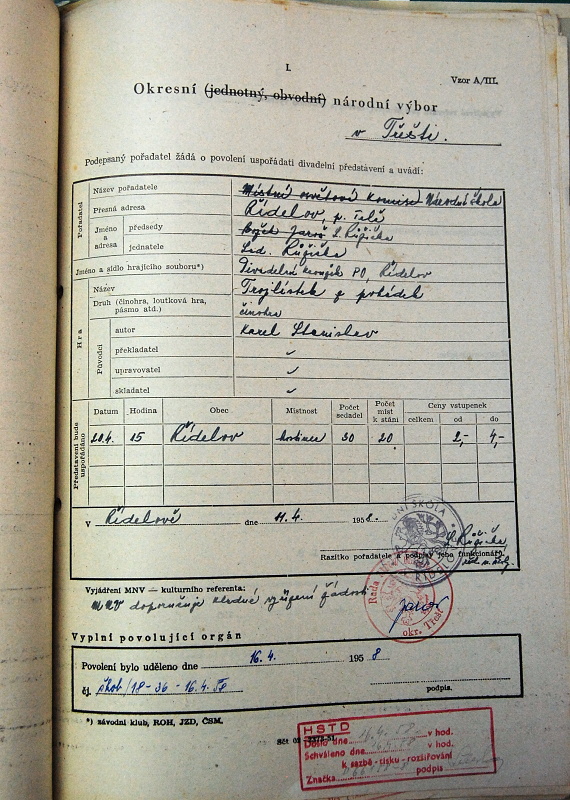 I.
Vzor A/III.
Okresní (jednotný, obvodní) národní výbor
v Třešti.
Podepsaný pořadatel žádá o povolení uspořádati divadelní představení a uvádí:
Pořadatel
Název pořadatele Místní osvětová komise Národní škola
Přesná adresa Řídelov p. Telč
Jméno a adresa
předsedy Jaroš L. Růžička
jednatele Lad. Růžička
Jméno a sídlo hrajícího souboru*) Divadelní kroužek PO, Řídelov
Hra
Název Trojlístek z pohádek
Druh (činohra, loutková hra, pásmo atd.) činohra
Původci
autor Karel Stanislav
překladatel
upravovatel
skladatel
Představení bude uspořádáno
Datum Hodina Obec Místnost Počet sedadel Počet míst k stání Ceny vstupenek
celkem od do
20.4. 15 Řídelov hostinec 30 20 2,- 4,-
V Řídelově dne 11.4. 1958.
NÍ ŠKOLA
L. Růžička
Razítko pořadatele a podpisy jeho funkcionářů.
Vyjádření MNV — kulturního referenta:
MNV doporučuje kladné vyřízení žádosti
Rada
okr. Třešť
Jaroš
Vyplní povolující orgán
Povolení bylo uděleno dne 16.4. 1958
čj. škol/18-36-16.4.58
podpis.
*) závodní klub, ROH, JZD, ČSM.
Sčt 05
HSTD
Došlo dne 16.4.58 v hod.
Schváleno dne v hod.
k sazbě - tisku - rozšiřování
Značka podpis